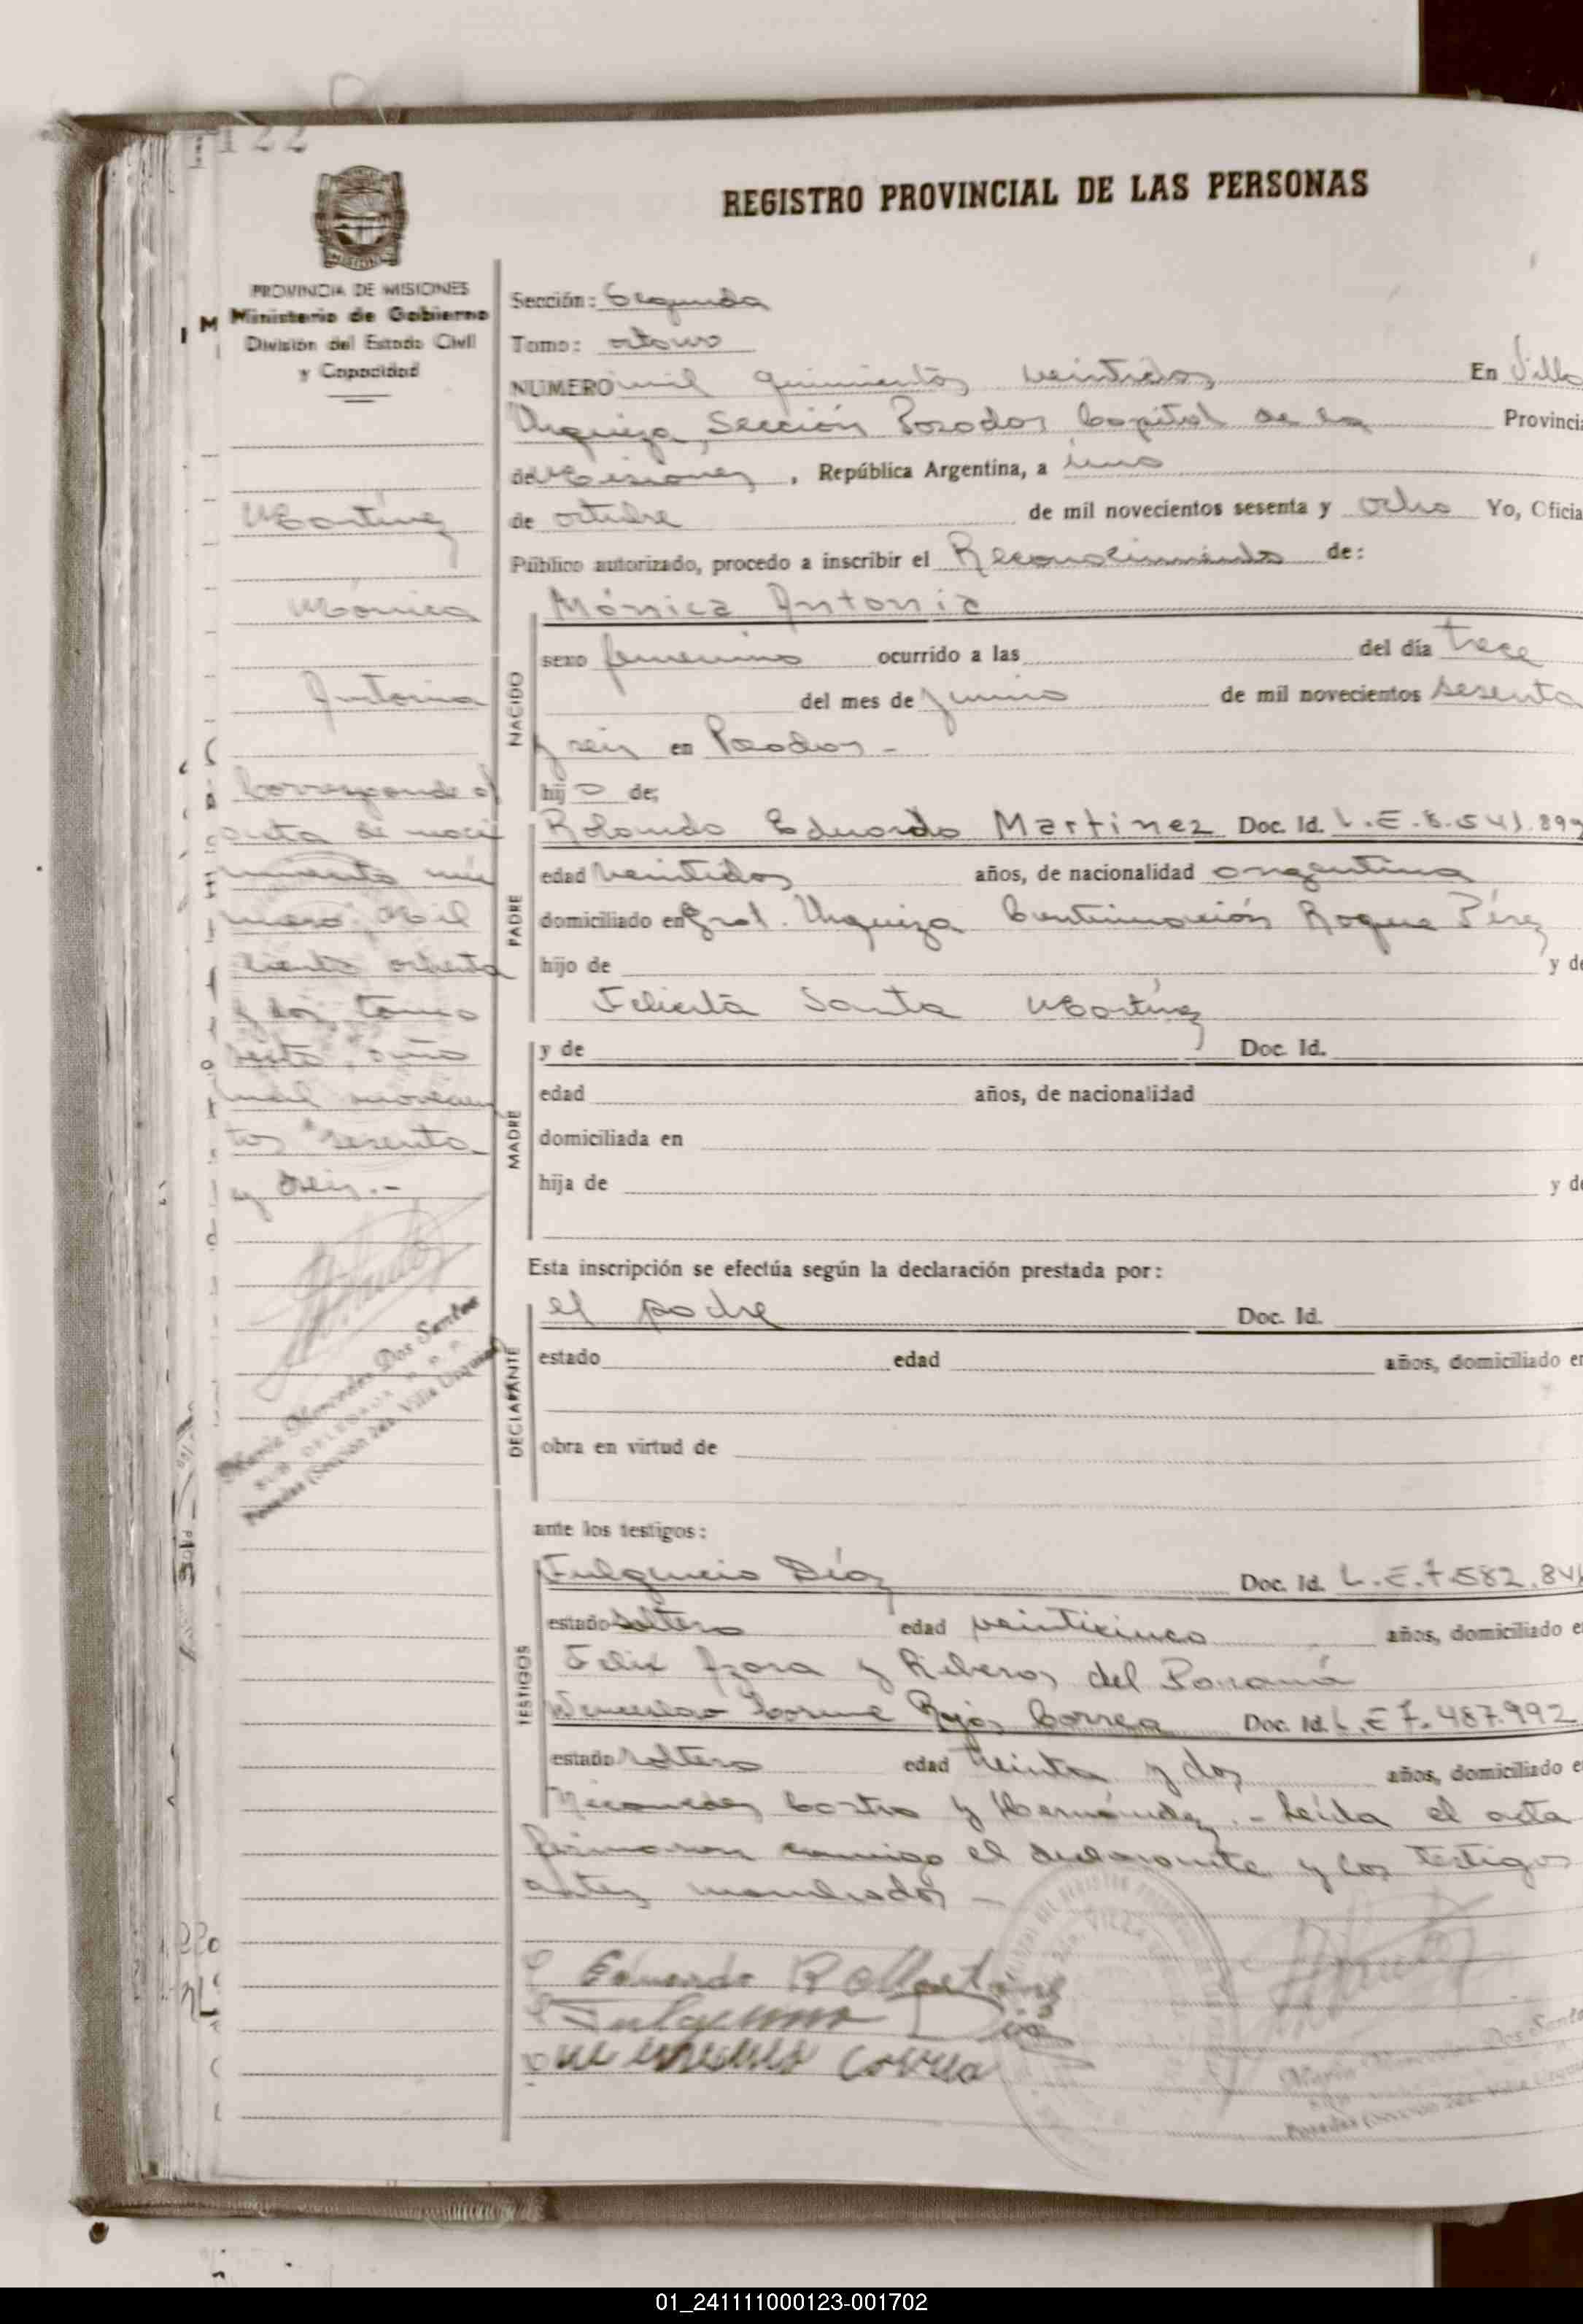 122
REGISTRO PROVINCIAL DE LAS PERSONAS
PROVINCIA DE MISIONES
Ministerio de Gobierno
División del Estado Civil
y Capacidad
Martínez
Mónica
Antonia
Corresponde al
acta de naci
miento nú
mero: Mil
ciento ochenta
y dos, tomo
sexto, año
mil novecien
tos sesenta
y seis.-
María Mercedes Dos Santos
SUB DELEGADA
Posadas (Sección 2da. Villa Urquiza)
Sección: Segunda
Tomo: octavo
NUMERO mil quinientos veintidos, En Villa
Urquiza, Sección Posadas Capital de la Provincia
de Misiones, República Argentina, a uno
de octubre de mil novecientos sesenta y ocho Yo, Oficia
Público autorizado, procedo a inscribir el Reconocimiento de:
Mónica Antonia
NACIDO
sexo femenino ocurrido a las del día trece
del mes de junio de mil novecientos sesenta
y seis en Posadas -
hij a de;
PADRE
Rolando Eduardo Martinez Doc. Id. L.E.8.541.899
edad veintidos años, de nacionalidad argentina
domiciliado en Gral. Urquiza Continuación Roque Pérez
hijo de y de
Felicita Santa Martínez
MADRE
y de Doc. Id.
edad años, de nacionalidad
domiciliada en
hija de y de
Esta inscripción se efectúa según la declaración prestada por:
DECLARANTE
el padre Doc. Id.
estado edad años, domiciliado en
obra en virtud de
ante los testigos:
TESTIGOS
Fulgencio Díaz Doc. Id. L.E.7.582.84
estado soltero edad veinticinco años, domiciliado e
Felix Azara y Riberas del Paraná
Wenceslao Rojas Correa Doc. Id. L.E 7.487.992
estado soltero edad treinta y dos años, domiciliado e
Castro y Hernández. - Leída el acta
firmaron conmigo el declarante y los testigos
antes nombrados -
Eduardo R Martínez
Fulgencio Díaz
Correa
María Mercedes Dos Santo
Posadas (Sección 2da. Villa Urqui
01_241111000123-001702